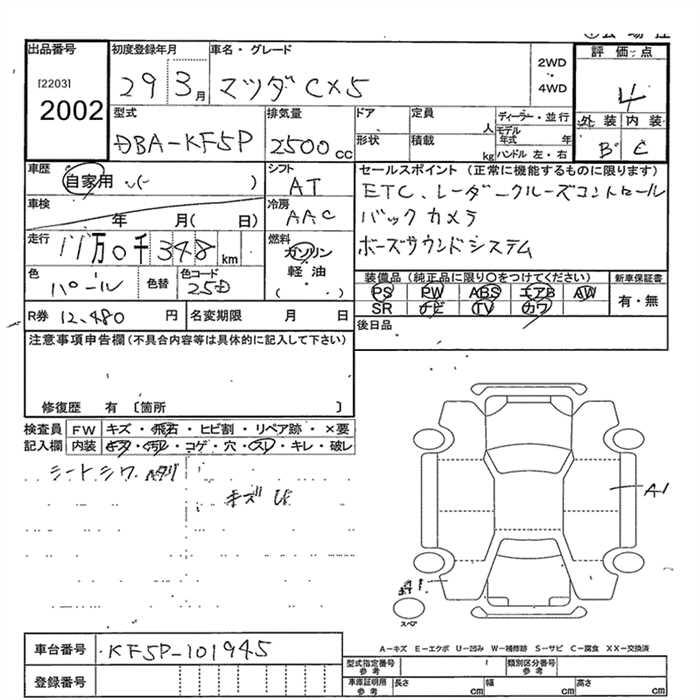 出品番号
[2203]
2002
初度登録年月
29 3月
車名・グレード
マツダ CX5
2WD
・
4WD
評価点
4
外装 内装
B C
型式
DBA-KF5P
排気量
2500cc
ドア
形状
定員
人
積載
kg
ディーラー・並行
モデル
年式 年
ハンドル 左・右
車歴
自家用 ( )
シフト
AT
セールスポイント (正常に機能するものに限ります)
ETC、レーダークルーズコントロール
バックカメラ
ボーズサウンドシステム
車検
年 月( 日)
冷房
AAC
走行
11万0千348km
燃料
ガソリン
軽油
( )
色
パール
色替
色コード
25D
装備品(純正品に限り○をつけてください)
PS PW ABS エアB AW
SR ナビ TV カワ
新車保証書
有・無
R券 12,480 円
名変期限 月 日
後日品
注意事項申告欄(不具合内容等は具体的に記入して下さい)
修復歴 有 〔箇所 〕
検査員 FW キズ・飛石・ヒビ割・リペア跡・×要
記入欄 内装 キズ・汚れ・コゲ・穴・スレ・キレ・破レ
シートシワ ヘタリ
キズ
A1
スペア
車台番号
KF5P-101945
登録番号
A-キズ E-エクボ U-凹み W-補修跡 S-サビ C-腐食 XX-交換済
型式指定番号
参考
類別区分番号
参考
車庫証明用
参考
長さ cm 幅 cm 高さ cm